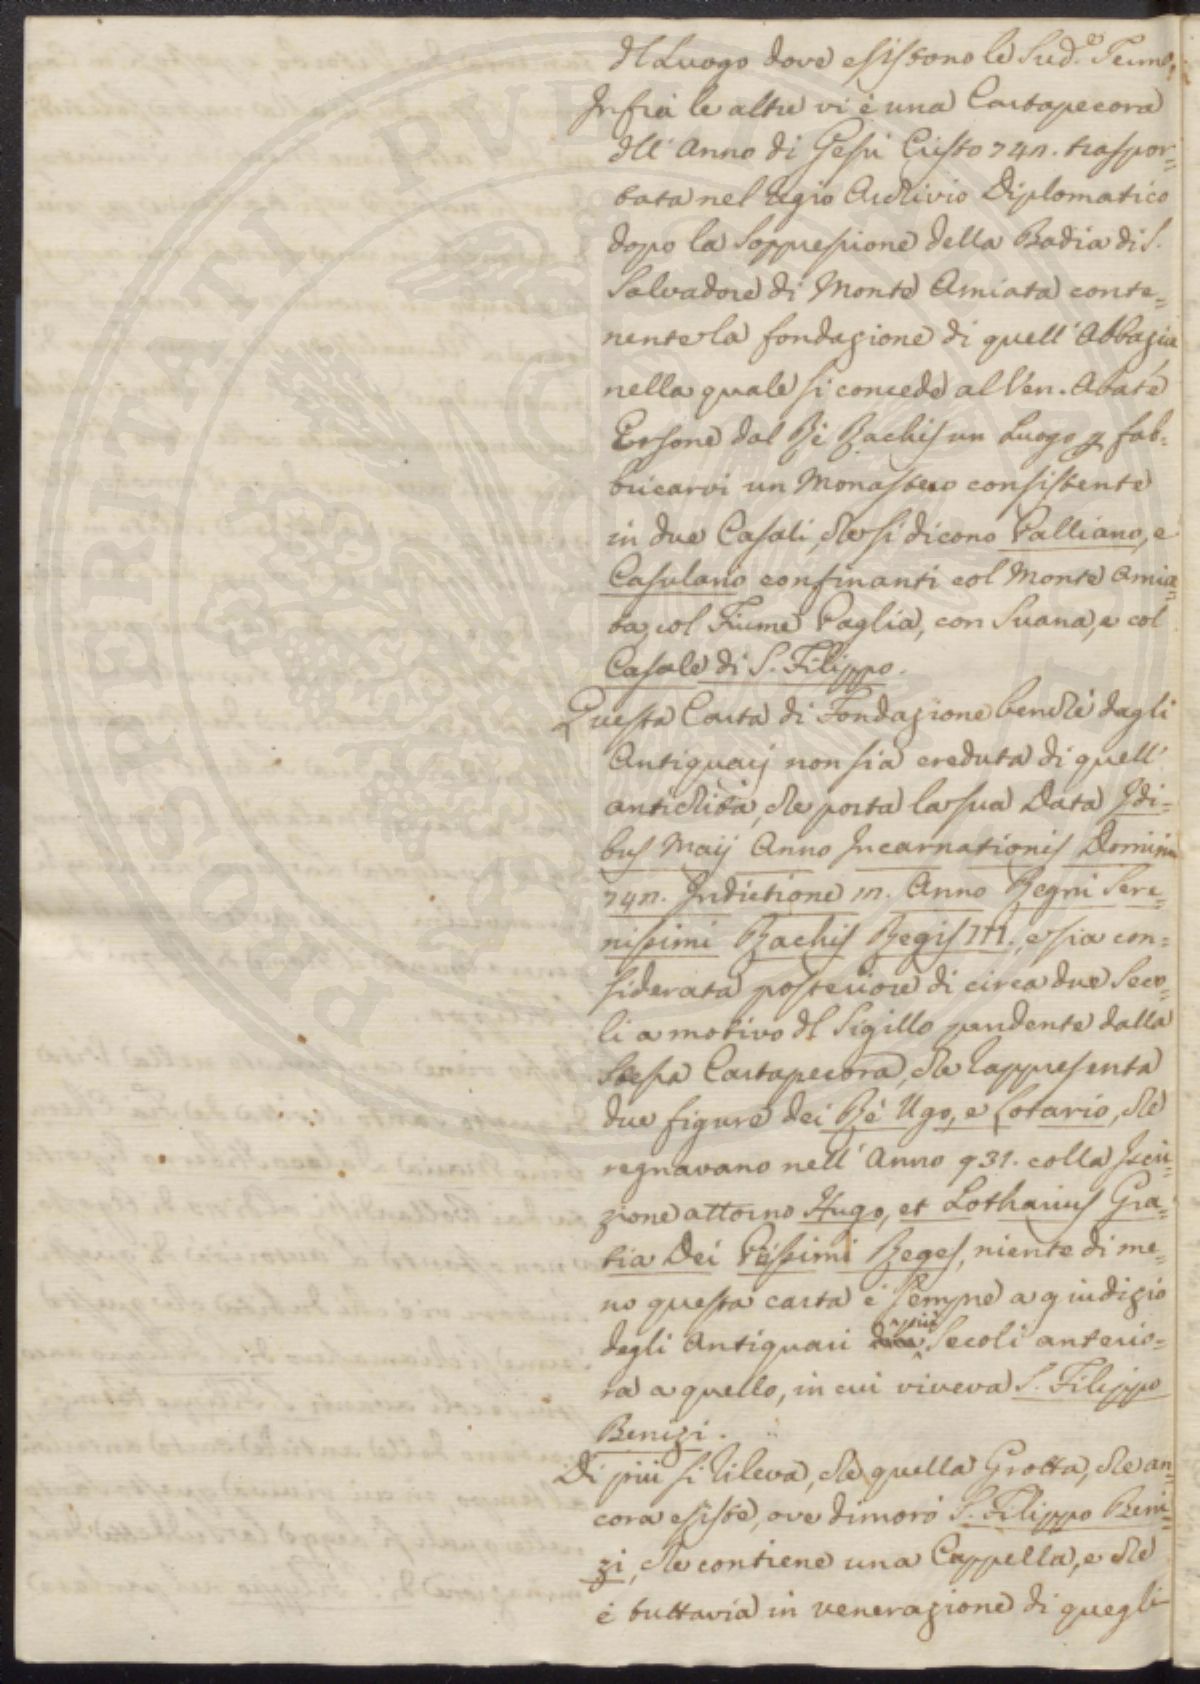 dl Luogo dove esistono le Sud.e Terme,
Infra le altre vi è una Cartapecora
dll' Anno di Gesù Cristo 742. traspor=
tata nel Regio Archivio Diplomatico
dopo la Soppressione della Badia di S.
Salvadore di Monte Amiata conte=
nente la fondazione di quell' Abbazia
nella quale si concede al Ven. Abate
Ersone dal Rè Rachis un Luogo p fab=
bricarvi un Monastero consistente
in due Casali, che si dicono Palliano, e
Casulano confinanti col Monte Amia=
ta, col Fiume Paglia, con Suana, e col
Casale di S. Filippo.
Questa Carta di Fondazione benchè dagli
Antiquarj non sia creduta di quell'
antichità, che porta la sua Data Idi=
bus Maij Anno Incarnationis Domini
742. Indictione III. Anno Regni Sere=
nissimi Rachis Regis III., e sia con=
siderata posteriore di circa due Seco=
li a motivo dl Sigillo pendente dalla
stessa Cartapecora, che rappresenta
due figure dei Rè Ugo, e Lotario, che
regnavano nell' Anno 931. colla Iscri=
zione attorno Hugo, et Lotharius Gra=
tia Dei Piissimi Reges, niente di me=
no questa carta è sempre a giudizio
degli Antiquari più Secoli anterio=
ra a quello, in cui viveva S. Filippo
Benizi.
Di più si rileva, che quella Grotta, che an=
cora esiste, ove dimorò S. Filippo Beni=
zi, che contiene una Cappella, e che
è tuttavia in venerazione di quegli
PROSPERITATI PUBLI